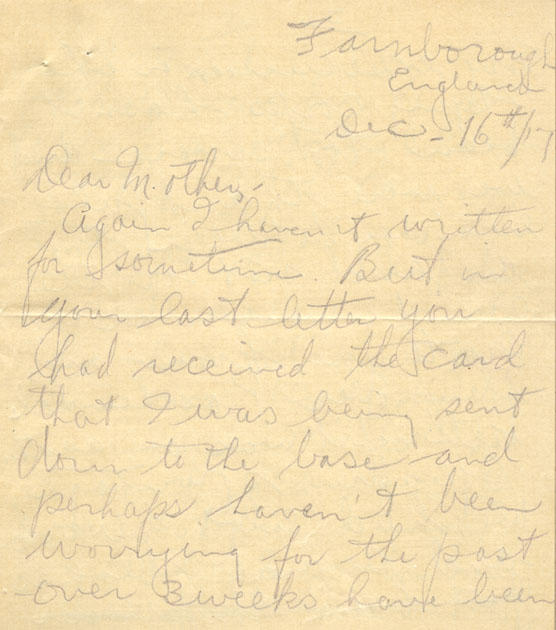 Farnborough
England
Dec - 16th/17
Dear Mother,-
Again I haven't written
for sometime. But in
your last letter you
had received the card
that I was being sent
down to the base and
perhaps haven't been
worrying for the past
over 3 weeks have been